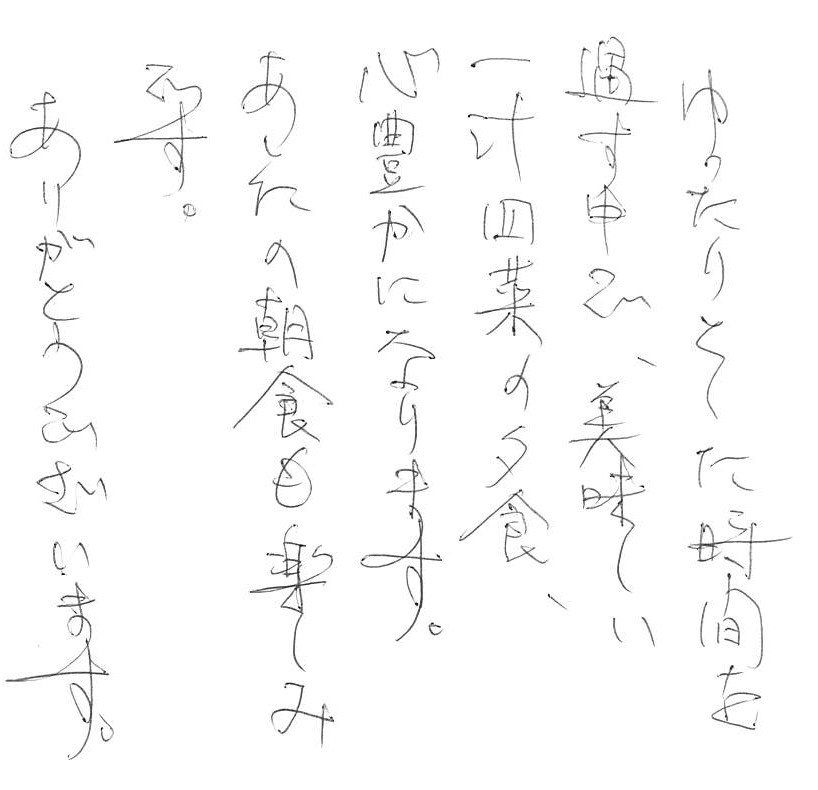 ゆったりとした時間を
過す中で、美味しい
一汁四菜の夕食、
心豊かになります。
あしたの朝食も楽しみ
です。
ありがとうございます。